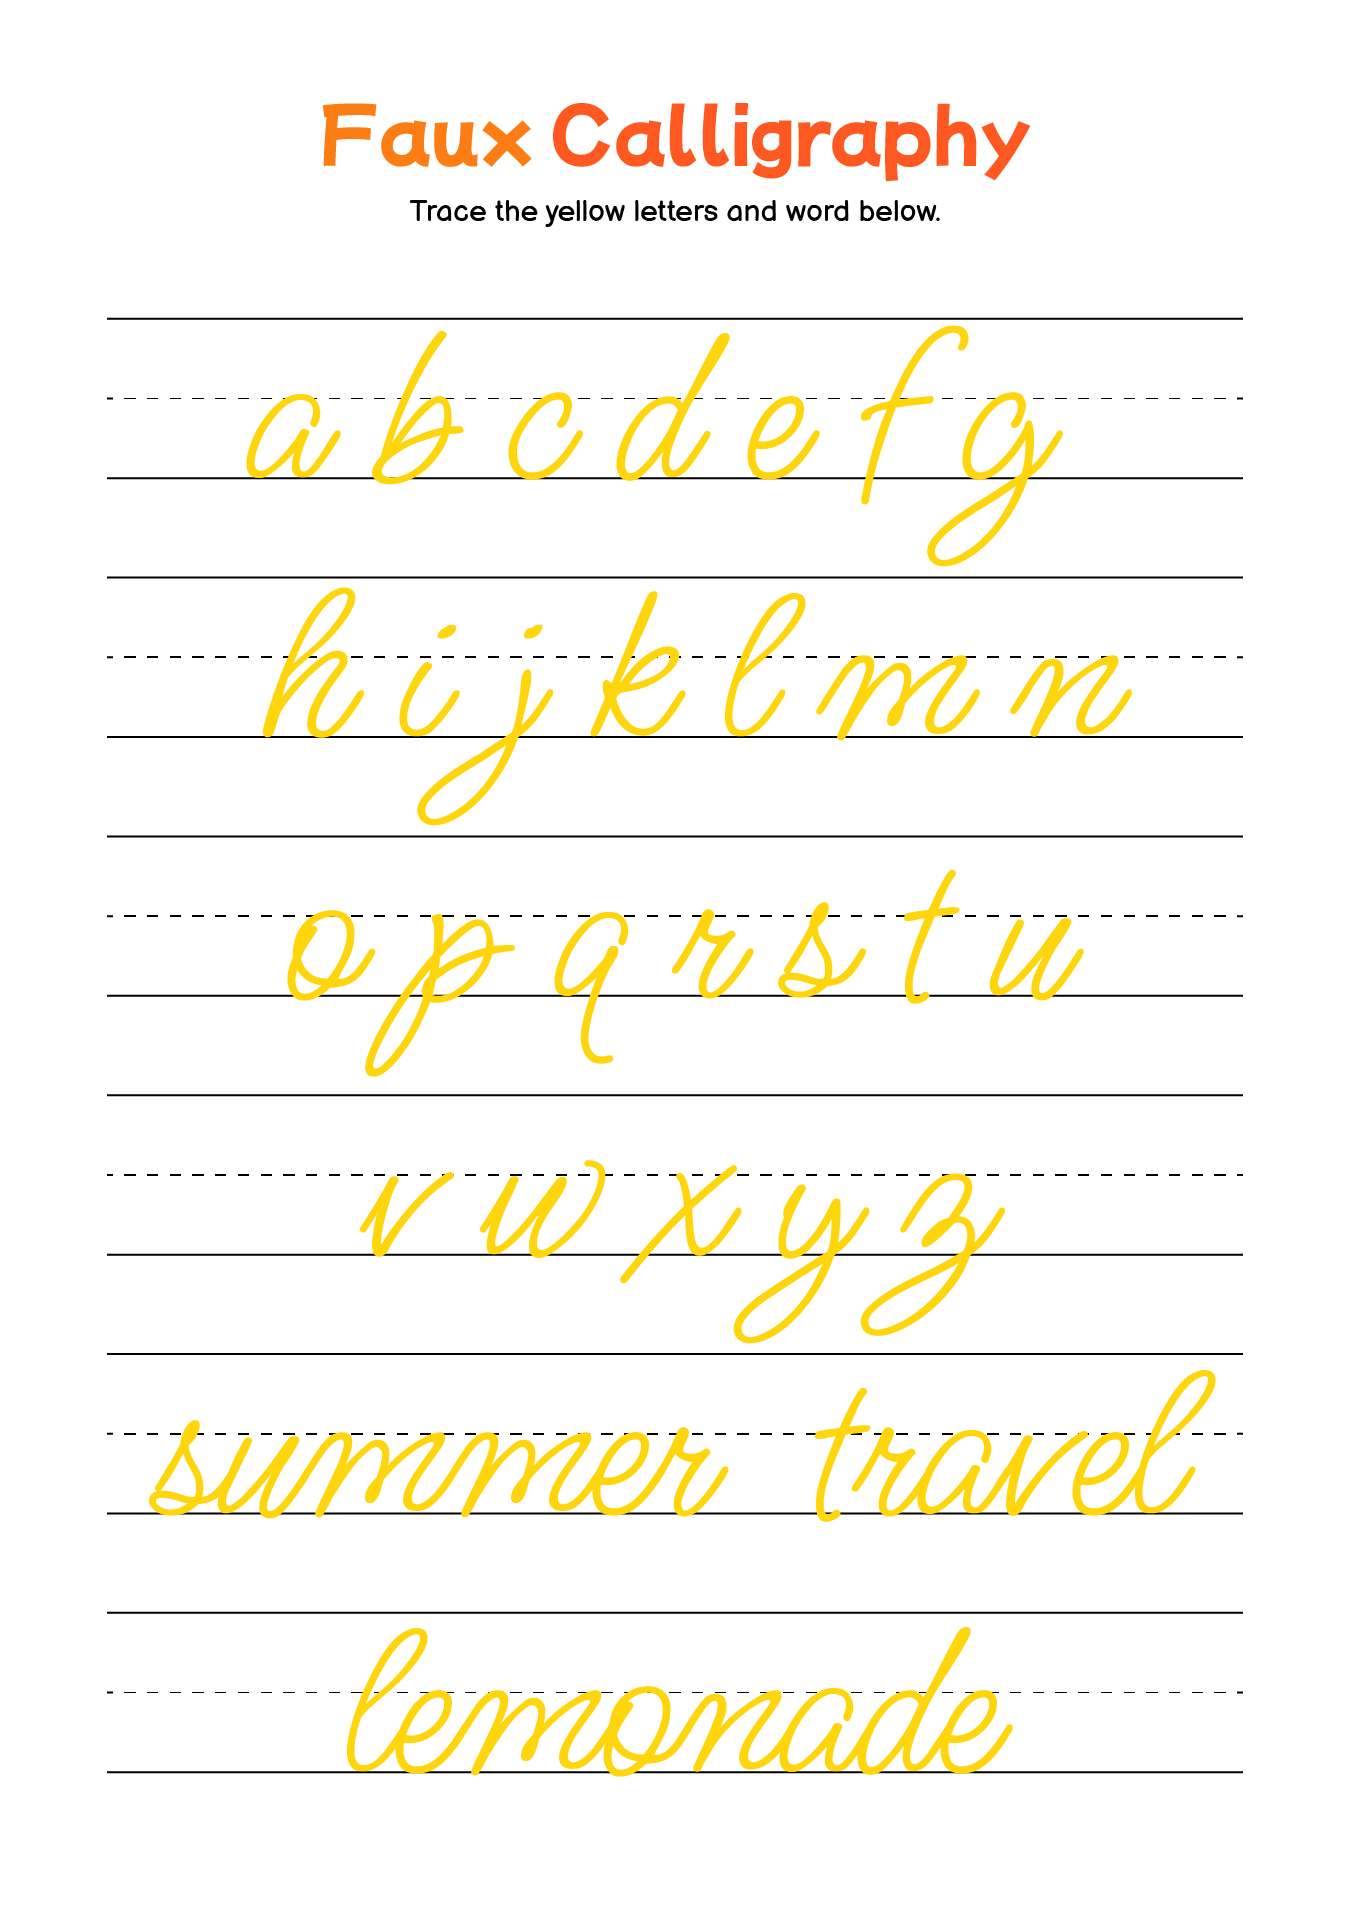 Faux Calligraphy
Trace the yellow letters and word below.
a b c d e f g
h i j k l m n
o p q r s t u
v w x y z
summer travel
lemonade